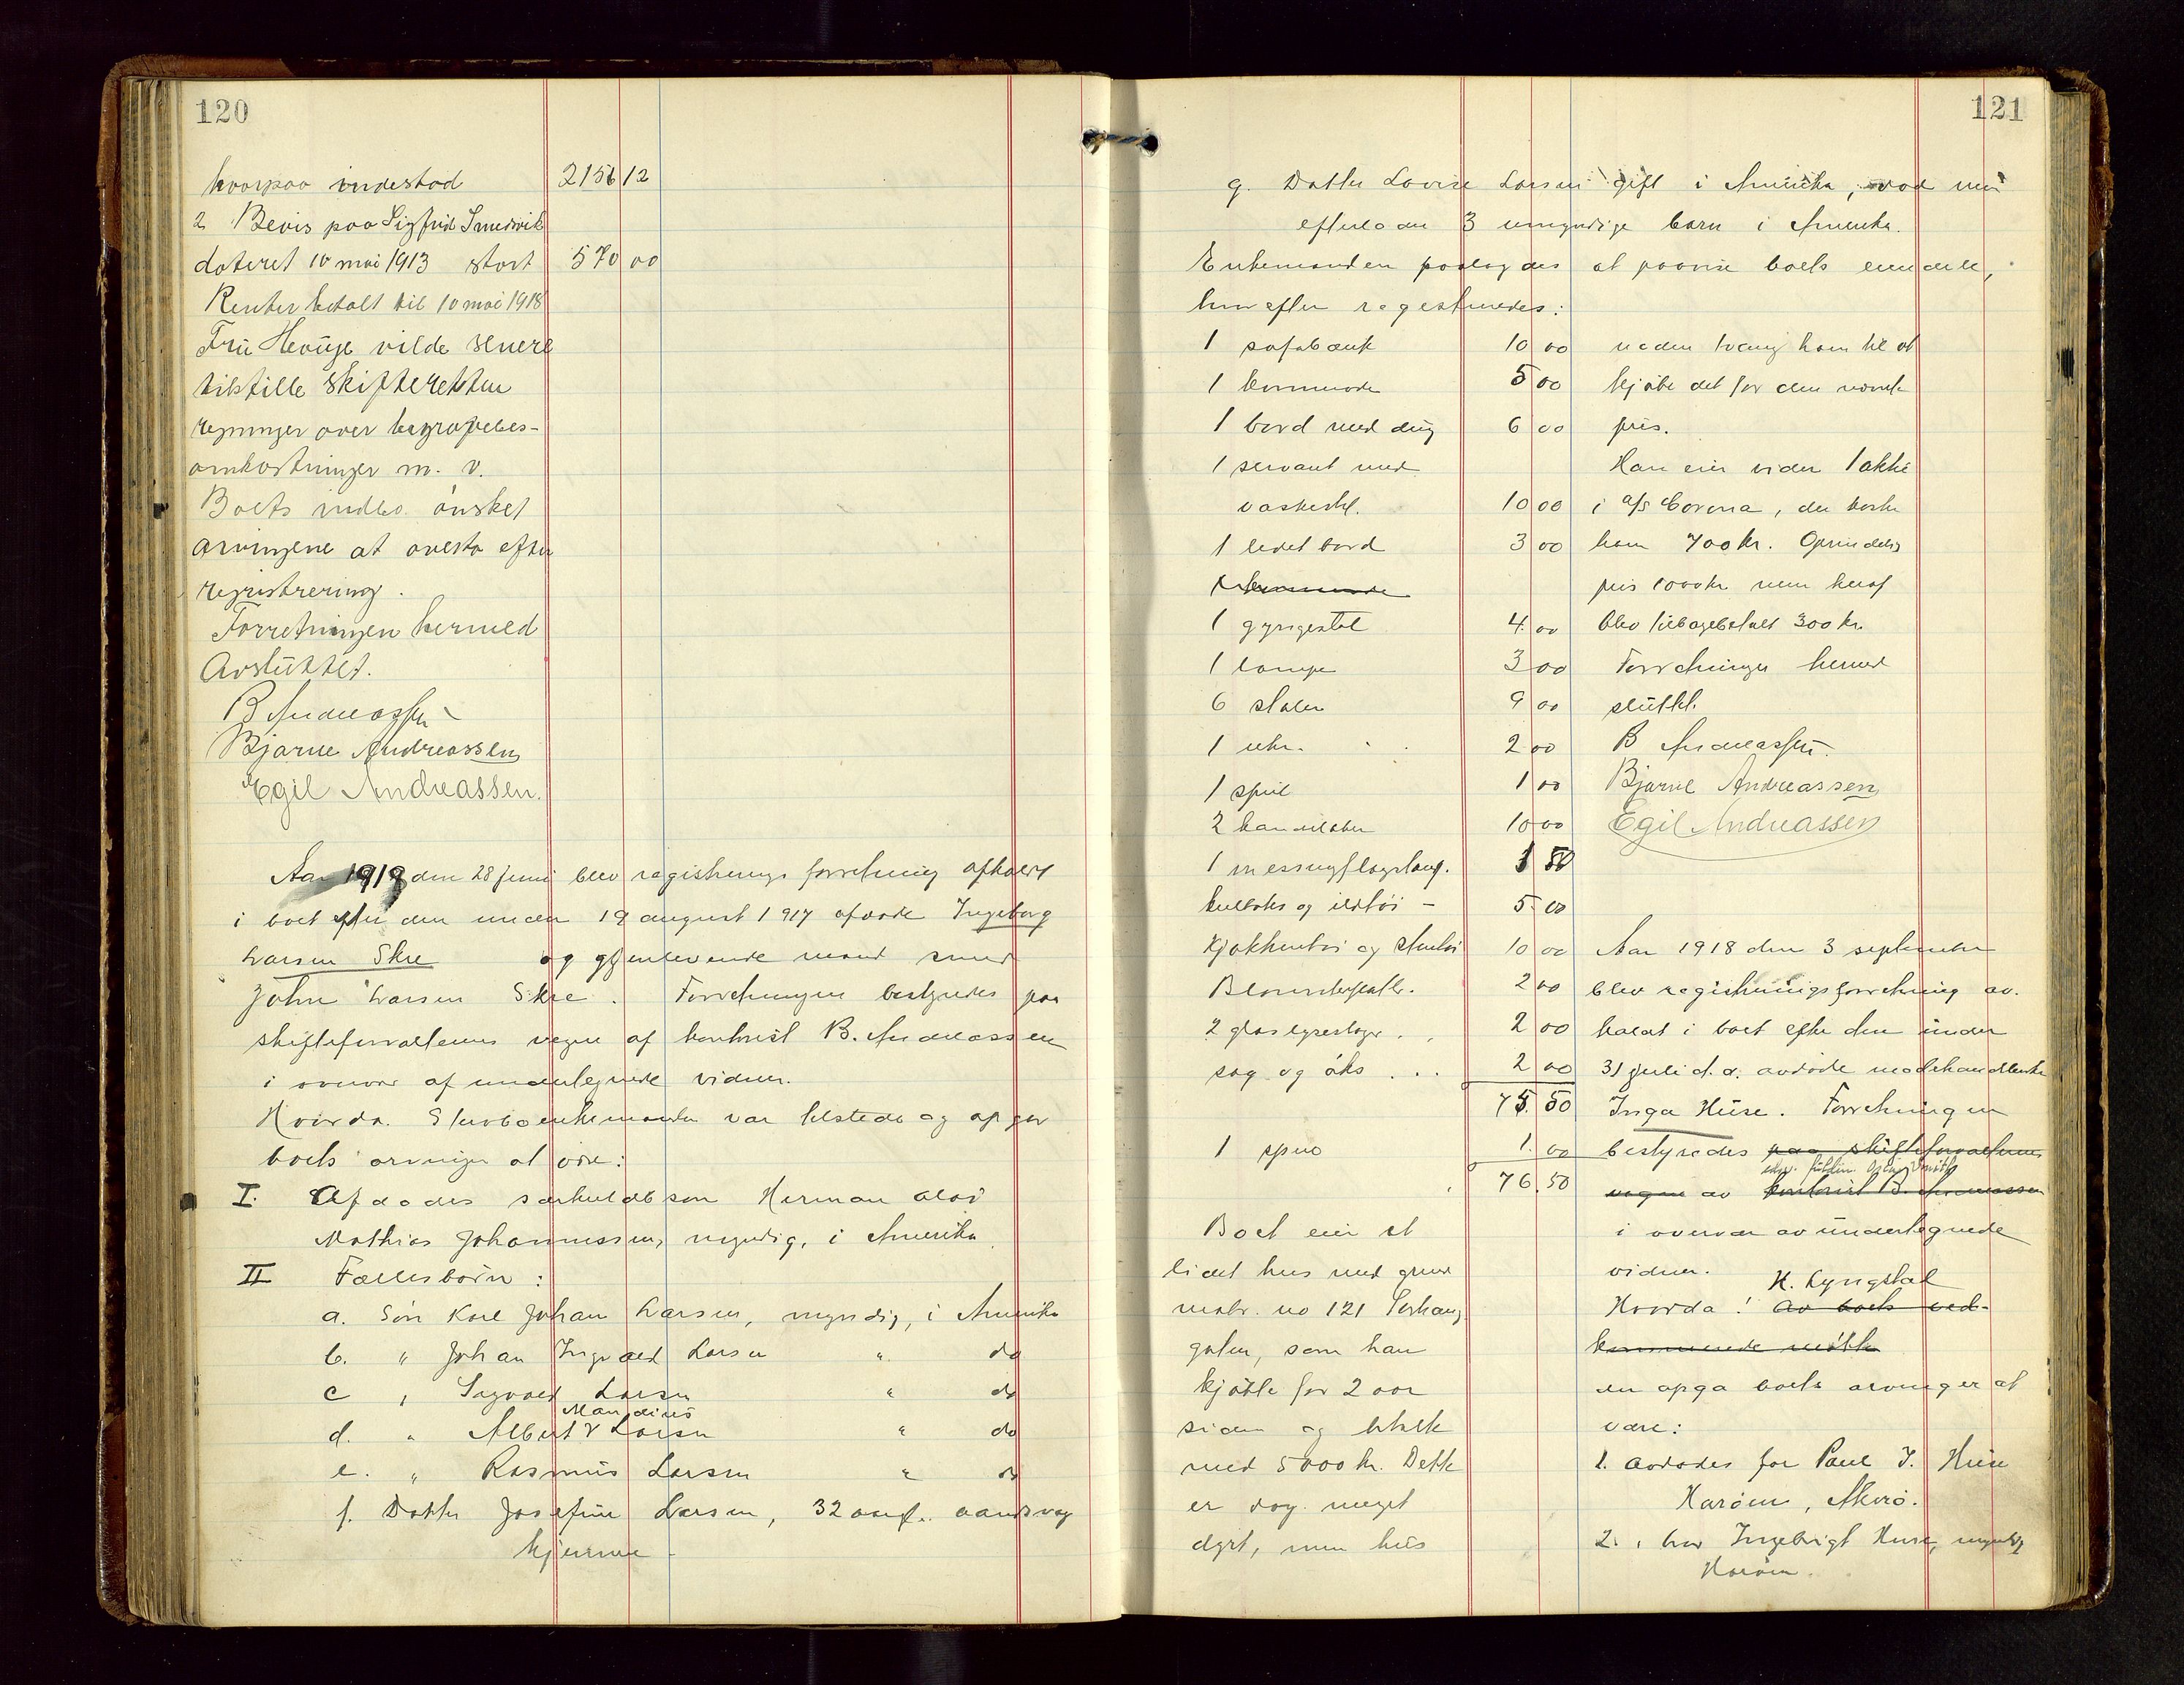 120
hvorpaa indestod 2156 12
2 Bevis paa Sigfrid Smedvik
dateret 10 mai 1913 stort 570 00
Renter betalt til 10 mai 1918
Fru Hauge vilde senere
tilstille skifteretten
regninger over begravelses-
omkostninger m. v.
Boets indbo ønsket
arvingene at overta efter
registrering.
Forretningen hermed
avsluttet.
B Andreassen
Bjarne Andreassen
Egil Andreassen.
Aar 1918 den 28 juni blev registrerings forretning afholdt
i boet efter den under 19 august 1917 afdøde Ingeborg
Larsen Skre og gjenlevende mand smed
John Larsen Skre. Forretningen bestyredes paa
skifteforvalterens vegne af kontorist B. Andreassen
i overvær af undertegnede vidner.
Hvorda. Sterboenkemanden var tilstede og opgav
boets arvinger at være:
I. Afdødes særkuldbson Herman Olav
Mathias Johannessen, myndig, i Amerika
II Fællesbørn:
a. Søn Karl Johan Larsen, myndig, i Amerika
b. " Johan Ingvald Larsen " do
c " Sigvald Larsen " do
Mandius
d. " Albert Larsen " do
e. " Rasmus Larsen " do
f. Datter Josefine Larsen, 32 aar, aandssvag
hjemme
121
g. Datter Lovise Larsen gift i Amerika, død men
efterlader 3 umyndige barn i Amerika.
Enkemanden paalagdes at paavise boets eiendele,
hvorefter registreredes:
1 sofabænk 10 00
1 kommode 5 00
1 bord med dug 6 00
1 servant med
vaskestel. 10 00
1 lidet bord 3 00
1 kommode
1 gyngestol 4 00
1 lampe 3 00
6 stoler 9 00
1 uhr. 2 00
1 speil 1 00
2 kandelaber 10 00
1 messingflagstang. 1 50
kulboks og ildtøi - 5 00
Kjøkkentøi og stentøi 10 00
Blomsterpotter. 2 00
2 glas lysestager 2 00
sag og øks ... 2 00
75 50
1 1.00
76.50
Boet eier et
lidet hus med grund
matr. no 121
gaten, som han
kjøbte for 2 aar
siden og betalte
med 5000 kr. Dette
er dog meget
dyrt, men hus
nøden tvang ham til at
kjøbe det for den nævnte
pris.
Han eier videre 1 aktie
i A/S Corona, der koster
ham 700 kr. Oprindelig
pris 1000 kr men herav
blev tilbagebetalt 300 kr.
Forretningen hermed
sluttet.
B Andreassen.
Bjarne Andreassen
Egil Andreassen
Aar 1918 den 3 september
blev registreringsforretning av-
holdt i boet efter den under
31 juli d.a. avdøde modehandlerske
Inga Huse. Forretningen
bestyredes paa skifteforvalterens
vegne av kontorist B. Andreassen
i overvær av undertegnede
vidner.
H. Lyngstad
Hvorda! Av boets ved-
kommende møtte
en opga boets arvinger at
være:
1. Avdødes far Paul I. Huse
Harøen, Akerø.
2. " bror Ingebrigt Huse, myndig
Harøen.